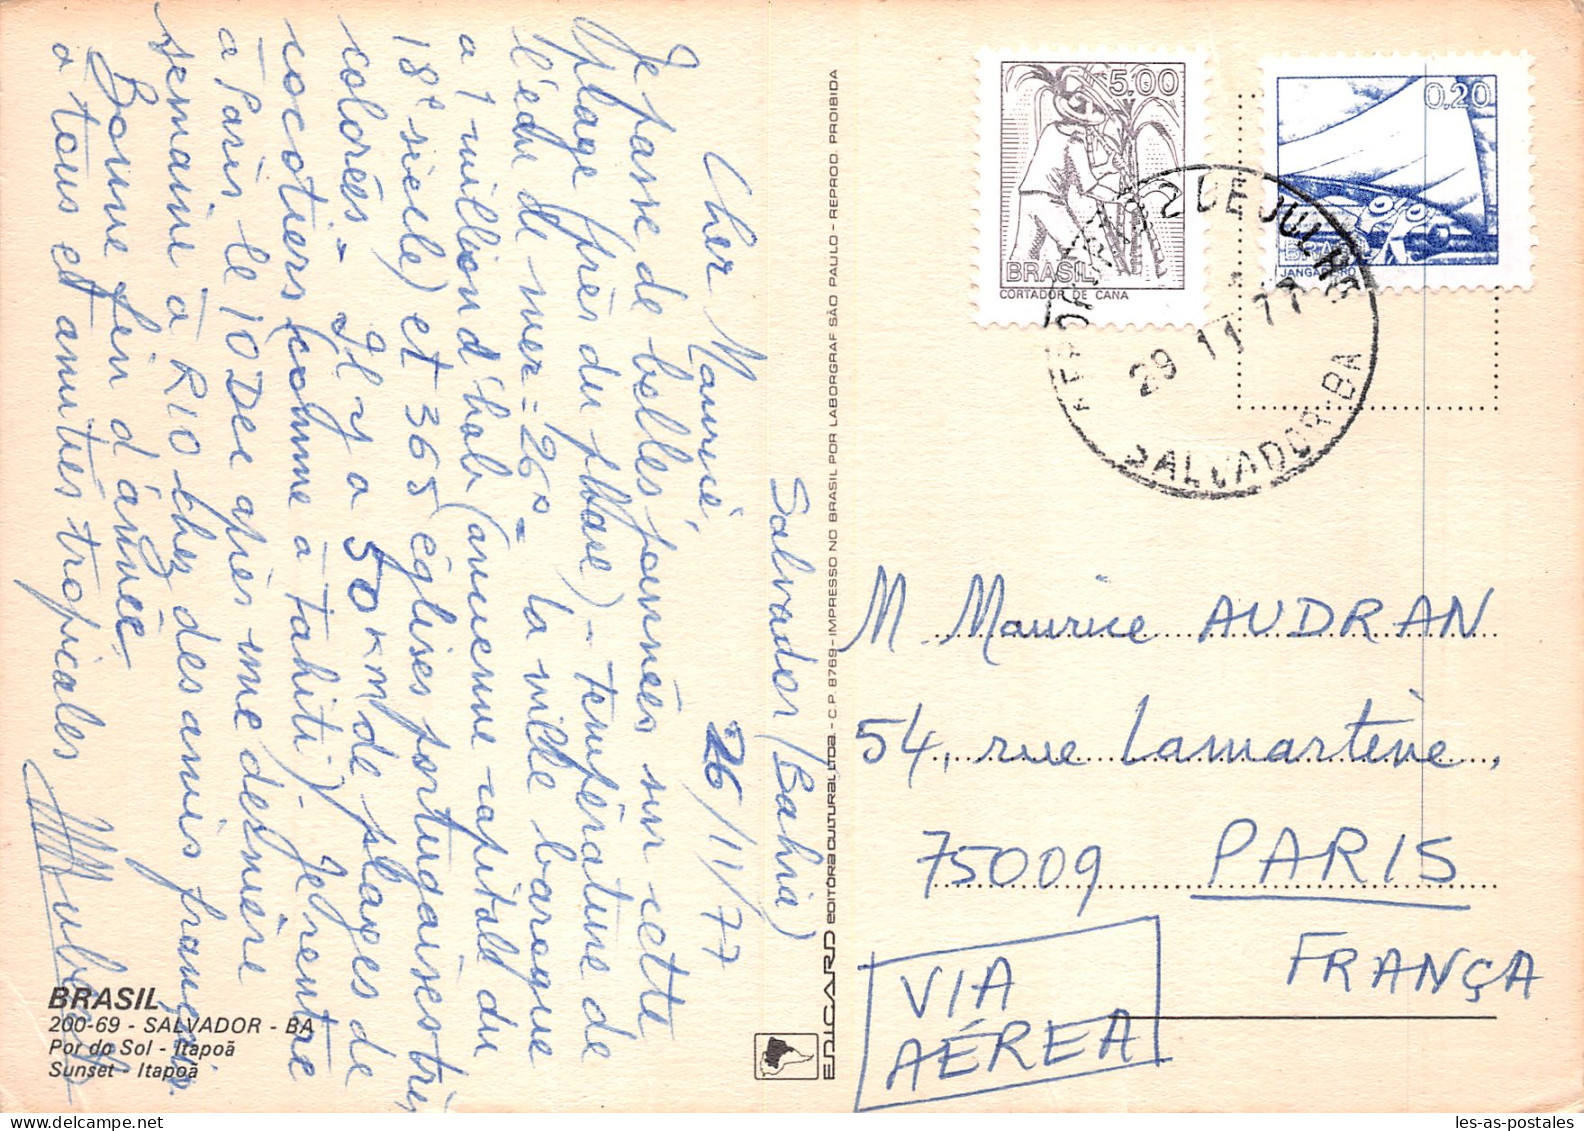 Salvador (Bahia)
26/11/77
Cher Maurice,
Je passe de belles journées sur cette
plage (près du phare) - température de
l'eau de mer = 26° - la ville baroque
a 1 million d'hab (ancienne capitale du
18e siecle) et 365 églises portugaises très
colorés - Il y a 50 km de plages de
cocotiers (comme à Tahiti). Je rentre
à Paris le 10 Dec après une dernière
semaine à RIO chez des amis français.
Bonne fin d'année
a tous et amitiés tropicales
BRASIL
200-69 - SALVADOR - BA
Por do Sol - Itapoã
Sunset - Itapoã
EDICARD EDITÔRA CULTURAL LTDA. - C.P. 8769 - IMPRESSO NO BRASIL POR LABORGRAF SÃO PAULO - REPROD. PROIBIDA
5,00
BRASIL
CORTADOR DE CANA
0,20
BRASIL
JANGADEIRO
2 DE JULHO
29 11 77
SALVADOR-BA
M. Maurice AUDRAN
54, rue Lamartève,
75009 PARIS
FRANÇA
VIA
AÉREA
les-as-postales